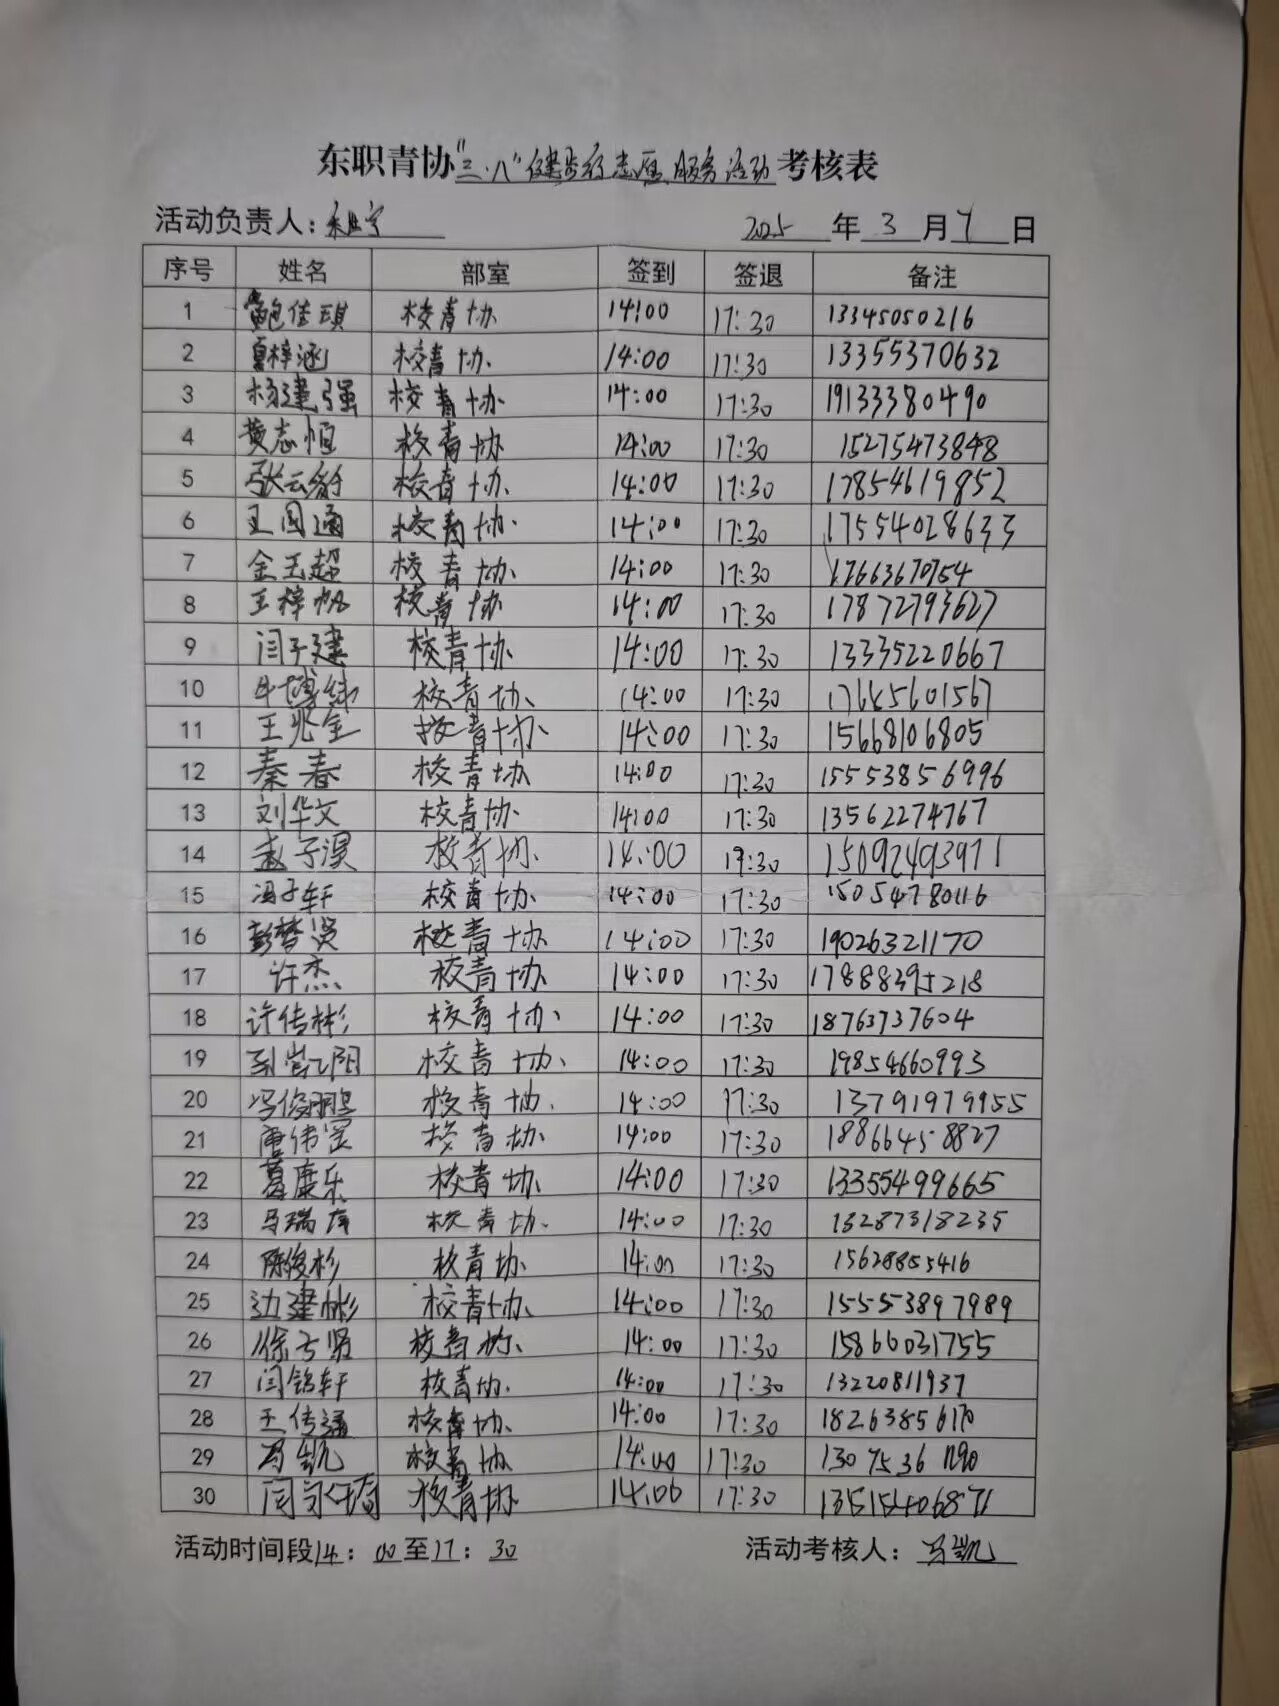 东职青协"三·八"健步行志愿服务活动考核表
活动负责人： 2025年3月7日
序号 姓名 部室 签到 签退 备注
1 鲍佳琪 校青协 14:00 17:30 13345050216
2 夏梓涵 校青协 14:00 17:30 13355370632
3 杨建强 校青协 14:00 17:30 19133380490
4 黄志恒 校青协 14:00 17:30 15275473848
5 张云 校青协 14:00 17:30 17854619852
6 王国通 校青协 14:00 17:30 17554028633
7 金玉超 校青协 14:00 17:30 17663670754
8 王梓帆 校青协 14:00 17:30 17872793627
9 闫子建 校青协 14:00 17:30 13335220667
10 牛博纬 校青协 14:00 17:30 17685601567
11 王兆全 校青协 14:00 17:30 15668106805
12 秦春 校青协 14:00 17:30 15553856996
13 刘华文 校青协 14:00 17:30 13562274767
14 赵子淏 校青协 14:00 17:30 15092493971
15 冯子轩 校青协 14:00 17:30 15054780116
16 彭梦贤 校青协 14:00 17:30 19026321170
17 许杰 校青协 14:00 17:30 17888395218
18 许传彬 校青协 14:00 17:30 18763737604
19 阳 校青协 14:00 17:30 19854660993
20 冯俊鹏 校青协 14:00 17:30 13791979955
21 唐伟罡 校青协 14:00 17:30 18866458827
22 葛康乐 校青协 14:00 17:30 13355499665
23 马瑞 校青协 14:00 17:30 13287318235
24 陈俊杉 校青协 14:00 17:30 15628855416
25 边建彬 校青协 14:00 17:30 15553897989
26 徐 贤 校青协 14:00 17:30 15866031755
27 闫铭轩 校青协 14:00 17:30 13220811937
28 王传通 校青协 14:00 17:30 18263856170
29 马凯 校青协 14:00 17:30 13075361290
30 闫 校青协 14:00 17:30 13515406871
活动时间段14：00至17：30 活动考核人：马凯